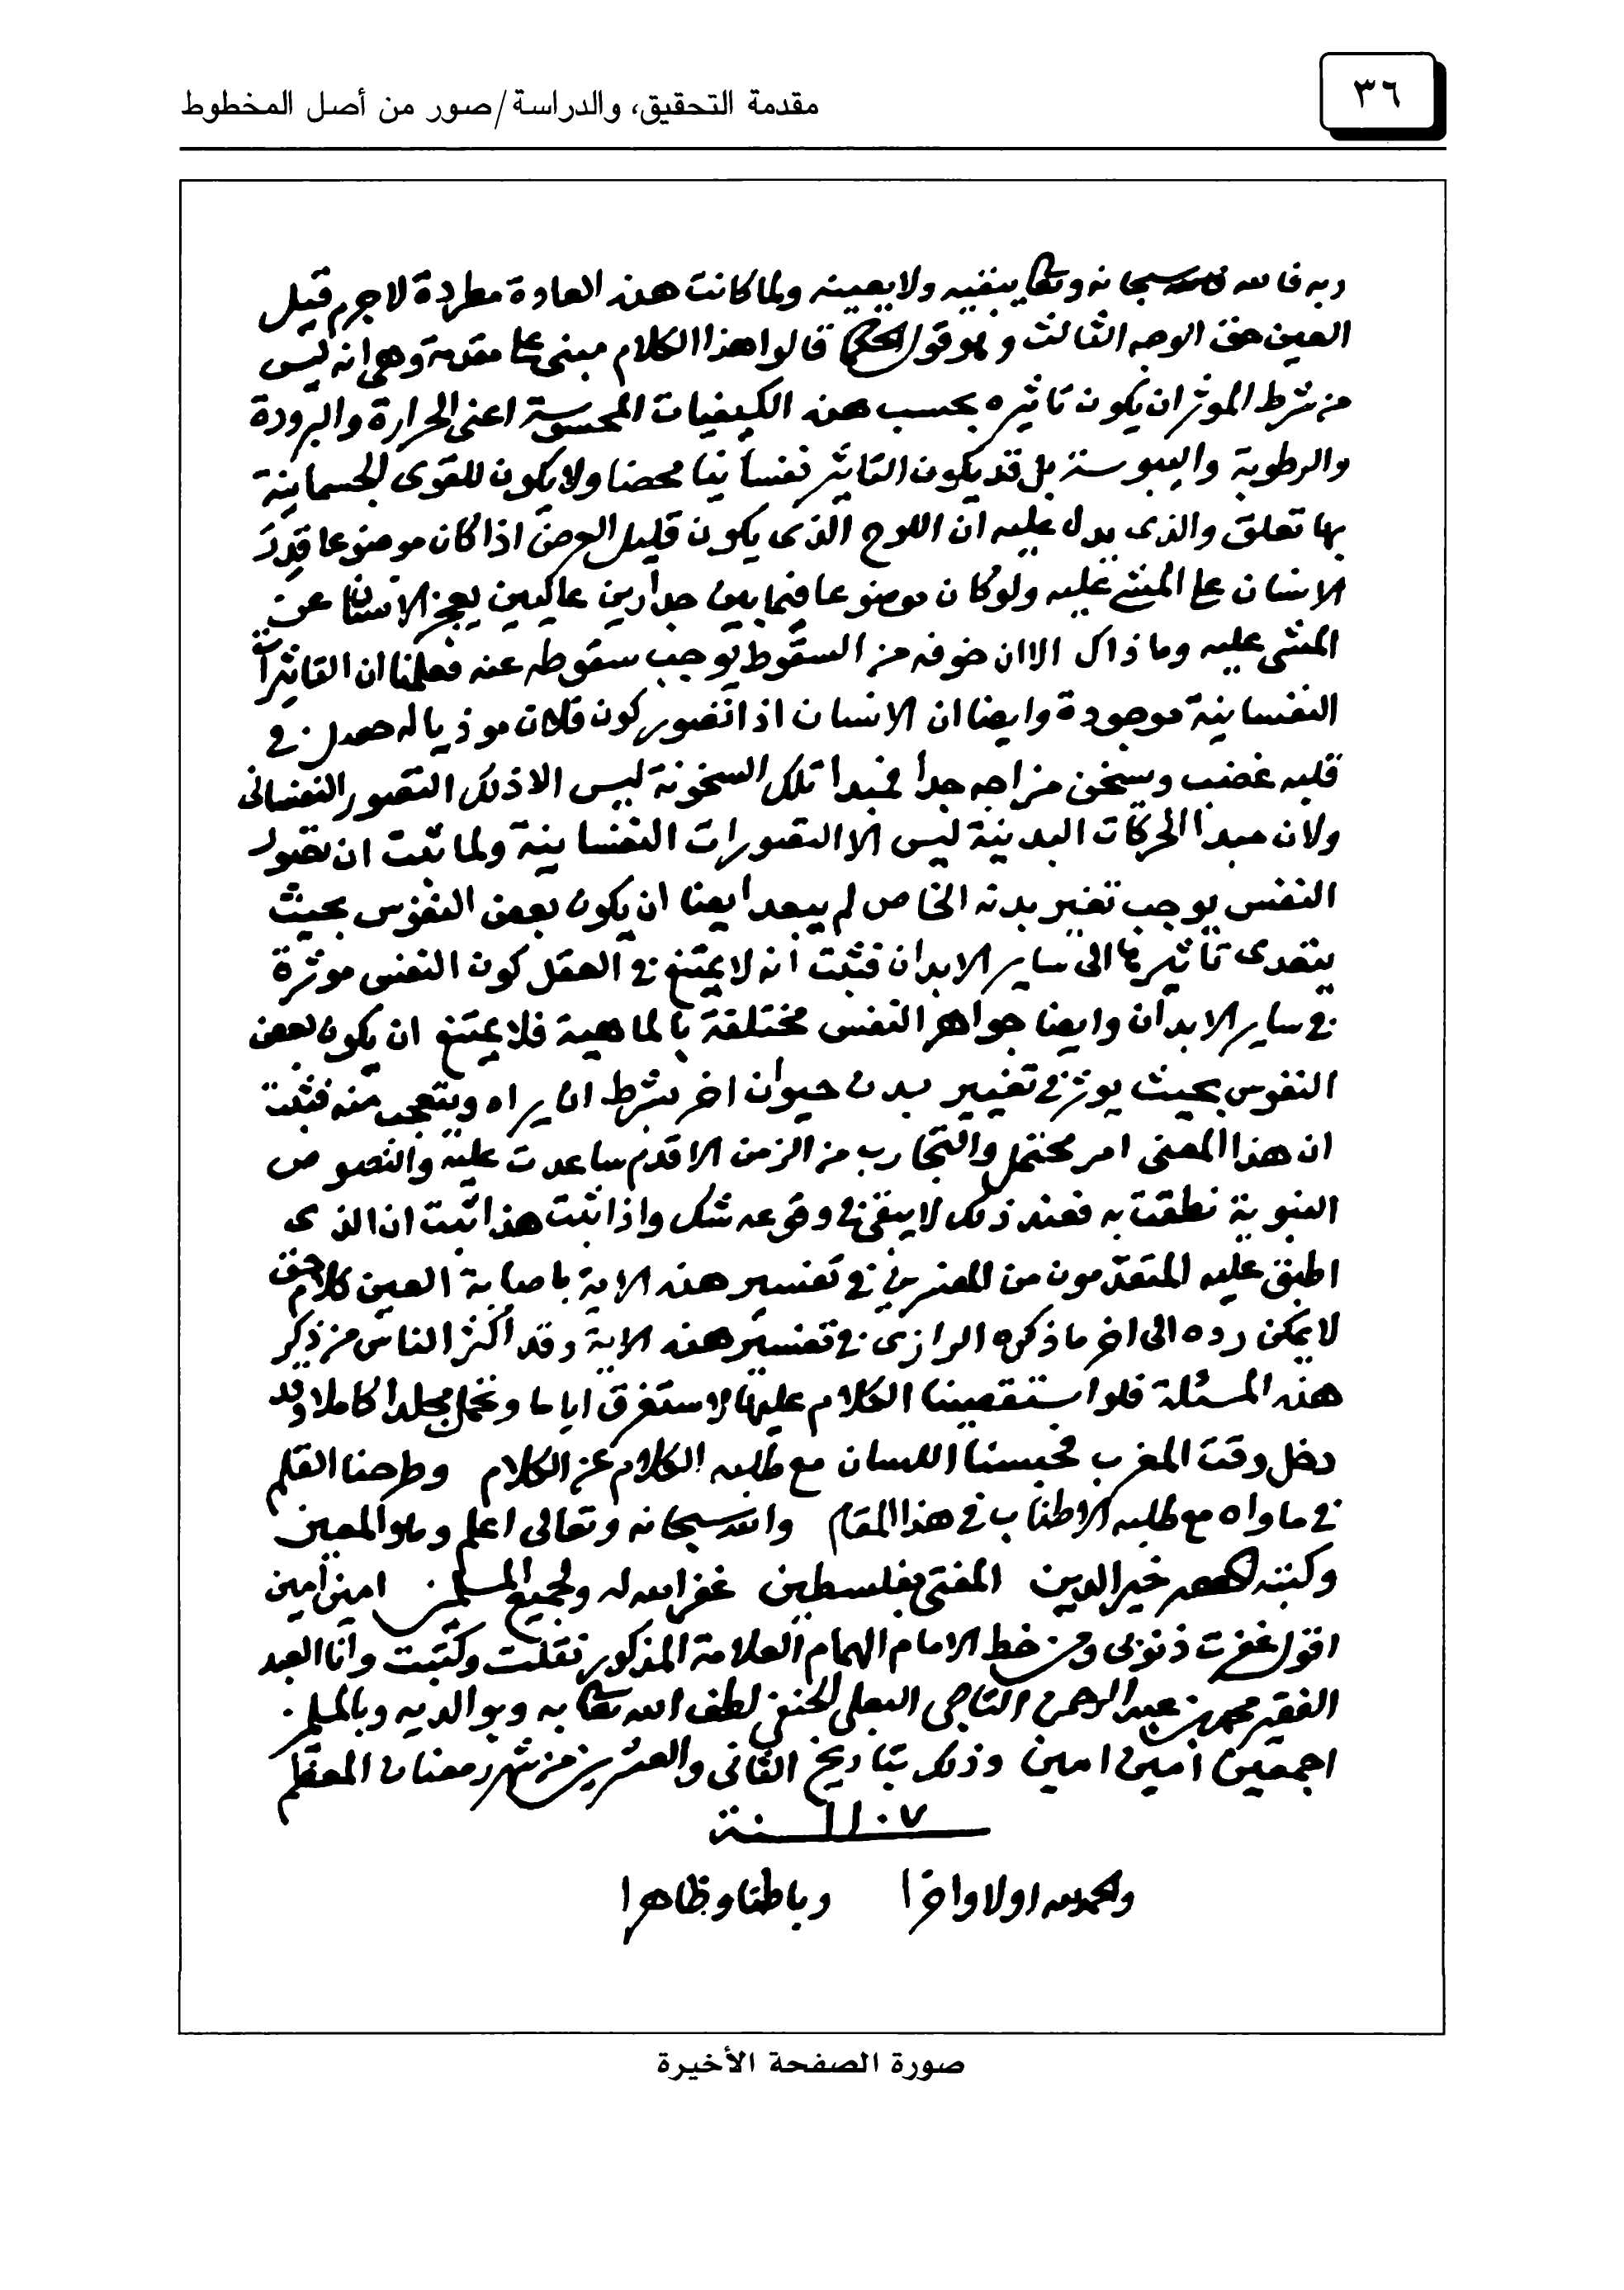 ٣٦
مقدمة التحقيق، والدراسة/صور من أصل المخطوط
ربه فالله سبحانه وتعالى ينفيه ولا يعينه ولما كانت هذه العادة مطردة لا جرم قيل
العين حق الوجه الثالث وهو قول الحكما قالوا هذا الكلام مبنى على مقدمة وهي انه ليس
من شرط الموثر ان يكون تاثيره بحسب هذه الكيفيات المحسوسة اعنى الحرارة والبرودة
والرطوبة واليبوسة بل قد يكون التاثير نفسانيا محضا ولا يكون للقوى الجسمانية
بها تعلق والذى يدل عليه ان اللوح الذى يكون قليل العرض اذا كان موضوعا قدر
الانسان على المشي عليه ولو كان موضوعا فيما بين جدارين عاليين يعجز الانسان عن
المشى عليه وما ذاك الا ان خوفه من السقوط يوجب سقوطه عنه فعلمنا ان التاثيرات
النفسانية موجودة وايضا ان الانسان اذا تصور كون فلان موذيا له حصل في
قلبه غضب ويسخن مزاجه جدا فمبدا تلك السخونة ليس الا ذلك التصور النفسانى
ولان مبدا الحركات البدنية ليس الا التصورات النفسانية ولما ثبت ان تصور
النفس يوجب تغير بدنه الخاص لم يبعد ايضا ان يكون بعض النفوس بحيث
يتعدى تاثيرها الى ساير الابدان فثبت انه لا يمتنع في العقل كون النفس موثرة
في ساير الابدان وايضا جواهر النفس مختلفة بالماهية فلا يمتنع ان يكون بعض
النفوس بحيث يوثر في تغيير بدن حيوان اخر بشرط ان يراه ويتعجب منه فثبت
ان هذا المعنى امر محتمل والتجارب من الزمن الاقدم ساعدت عليه والنصوص
النبوية نطقت به فعند ذلك لا يبقى في وقوعه شك واذا ثبت هذا ثبت ان الذى
اطبق عليه المتقدمون من المفسرين في تفسير هذه الاية باصابة العين كلام حق
لا يمكن رده الى اخر ما ذكره الرازى في تفسير هذه الاية وقد اكثر الناس من ذكر
هذه المسئلة فلو استقصينا الكلام عليها لاستغرق اياما وتحمل مجلدا كاملا وقد
دخل وقت المغرب فحبسنا اللسان مع طلبه الكلام عن الكلام وطرحنا القلم
في ماواه مع طلبه الاطناب في هذا المقام والله سبحانه وتعالى اعلم وهو المعين
وكتبه خير الدين المفتى بفلسطين غفر الله له ولجميع المسلمين امين امين
اقول غفرت ذنوبى ومن خط الامام الهمام العلامة المذكور نقلت وكتبت وانا العبد
الفقير محمد بن عبد الرحمن التاجى البعلى الحنفى لطف الله تعالى به وبوالديه وبالمسلمين
اجمعين امين امين وذلك بتاريخ الثانى والعشرين من شهر رمضان المعظم
سنة ١١٠٧
والحمد لله اولا واخرا وباطنا وظاهرا
صورة الصفحة الأخيرة